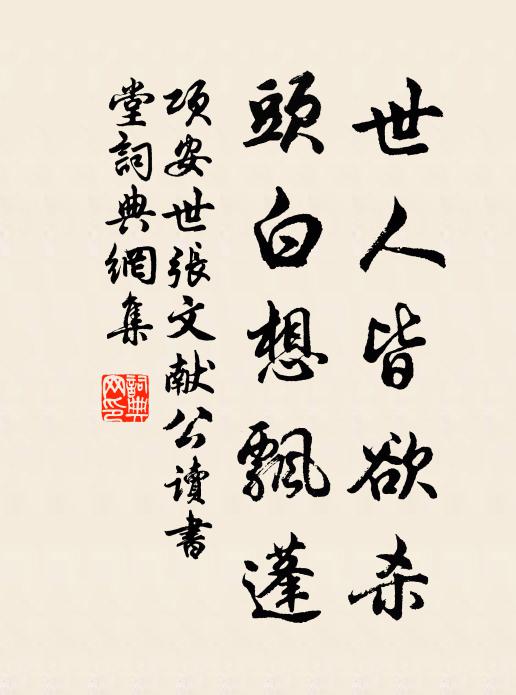 世人皆欲杀
頭白想飄蓬
项安世張文献公讀書
堂詞典網集
詞典
网印